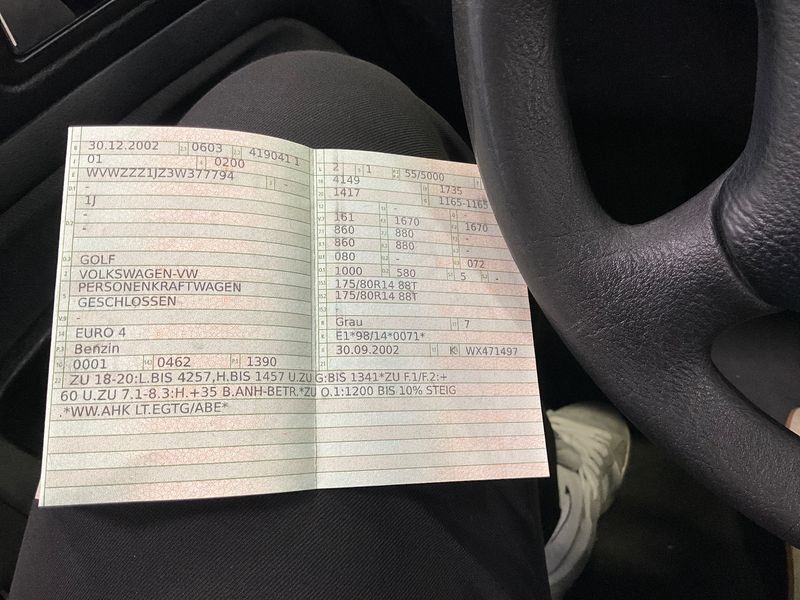 30.12.2002 0603 419041 1
01 0200
WVWZZZ1JZ3W377794 -
-
1J
-
-
GOLF
VOLKSWAGEN-VW
PERSONENKRAFTWAGEN
GESCHLOSSEN
-
EURO 4
Benzin
0001 0462 1390
2 1 55/5000
4149
1417 1735
- 1165-1165
161 1670 -
860 880 1670
860 880 -
080 - -
1000 580 072
5 -
175/80R14 88T
175/80R14 88T
-
Grau 7
E1*98/14*0071*
30.09.2002 K WX471497
-
22 ZU 18-20:L.BIS 4257,H.BIS 1457 U.ZU G:BIS 1341*ZU F.1/F.2:+
60 U.ZU 7.1-8.3:H.+35 B.ANH-BETR.*ZU O.1:1200 BIS 10% STEIG
.*WW.AHK LT.EGTG/ABE*